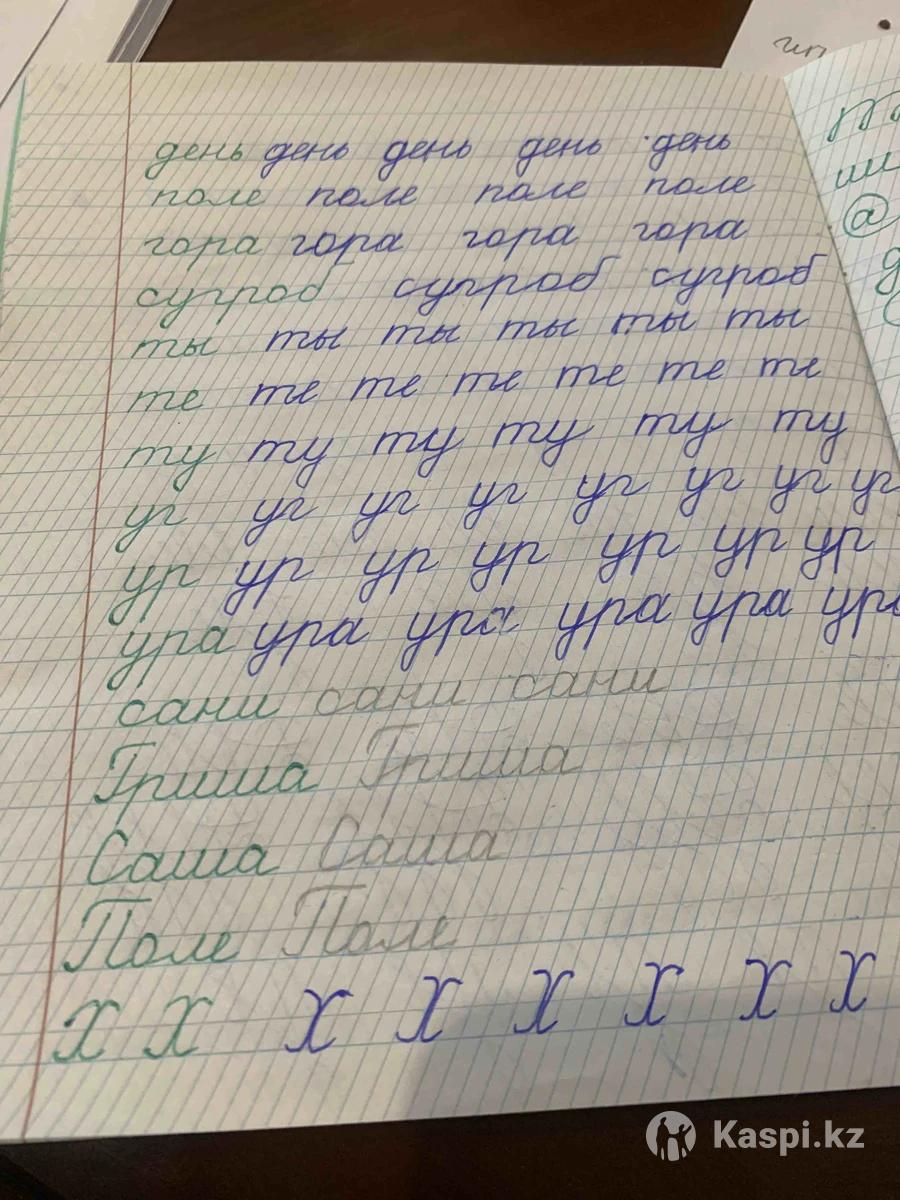 день день день день день
поле поле поле поле
гора гора гора гора
сугроб сугроб сугроб
ты ты ты ты ты ты
те те те те те те те
ту ту ту ту ту ту
уг уг уг уг уг уг уг уг
ур ур ур ур ур ур ур
ура ура ура ура ура ура
сани сани сани
Гриша Гриша
Саша Саша
Поле Поле
Х Х Х Х Х Х Х Х
Kaspi.kz